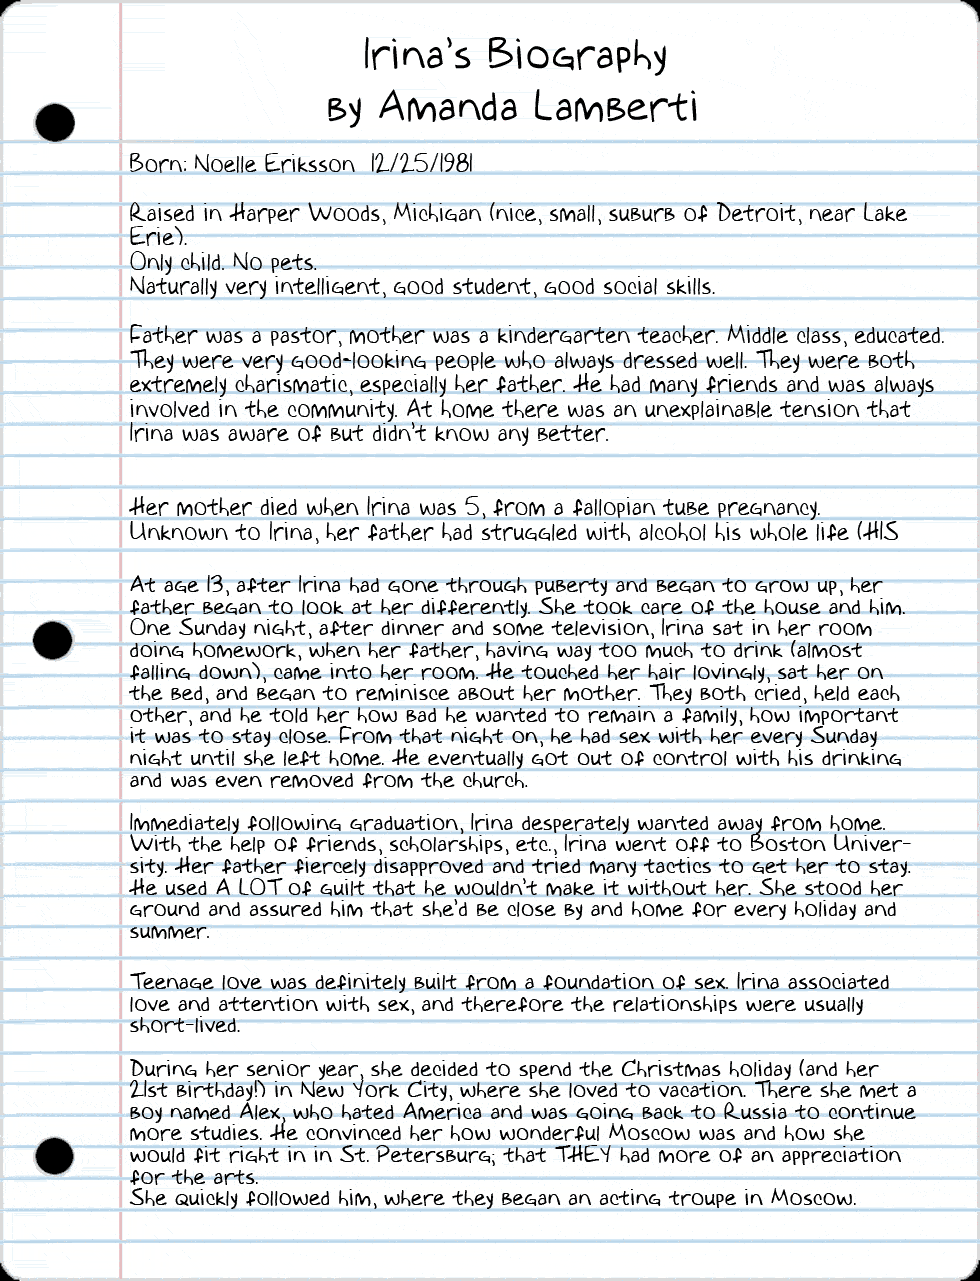 Irina's Biography
By Amanda Lamberti
Born: Noelle Eriksson 12/25/1981
Raised in Harper Woods, Michigan (nice, small, suburb of Detroit, near Lake
Erie).
Only child. No pets.
Naturally very intelligent, good student, good social skills.
Father was a pastor, mother was a kindergarten teacher. Middle class, educated.
They were very good-looking people who always dressed well. They were both
extremely charismatic, especially her father. He had many friends and was always
involved in the community. At home there was an unexplainable tension that
Irina was aware of but didn't know any better.
Her mother died when Irina was 5, from a fallopian tube pregnancy.
Unknown to Irina, her father had struggled with alcohol his whole life (HIS
At age 13, after Irina had gone through puberty and began to grow up, her
father began to look at her differently. She took care of the house and him.
One Sunday night, after dinner and some television, Irina sat in her room
doing homework, when her father, having way too much to drink (almost
falling down), came into her room. He touched her hair lovingly, sat her on
the bed, and began to reminisce about her mother. They both cried, held each
other, and he told her how bad he wanted to remain a family, how important
it was to stay close. From that night on, he had sex with her every Sunday
night until she left home. He eventually got out of control with his drinking
and was even removed from the church.
Immediately following graduation, Irina desperately wanted away from home.
With the help of friends, scholarships, etc., Irina went off to Boston Univer-
sity. Her father fiercely disapproved and tried many tactics to get her to stay.
He used A LOT of guilt that he wouldn't make it without her. She stood her
ground and assured him that she'd be close by and home for every holiday and
summer.
Teenage love was definitely built from a foundation of sex. Irina associated
love and attention with sex, and therefore the relationships were usually
short-lived.
During her senior year, she decided to spend the Christmas holiday (and her
21st birthday!) in New York City, where she loved to vacation. There she met a
boy named Alex, who hated America and was going back to Russia to continue
more studies. He convinced her how wonderful Moscow was and how she
would fit right in in St. Petersburg; that THEY had more of an appreciation
for the arts.
She quickly followed him, where they began an acting troupe in Moscow.